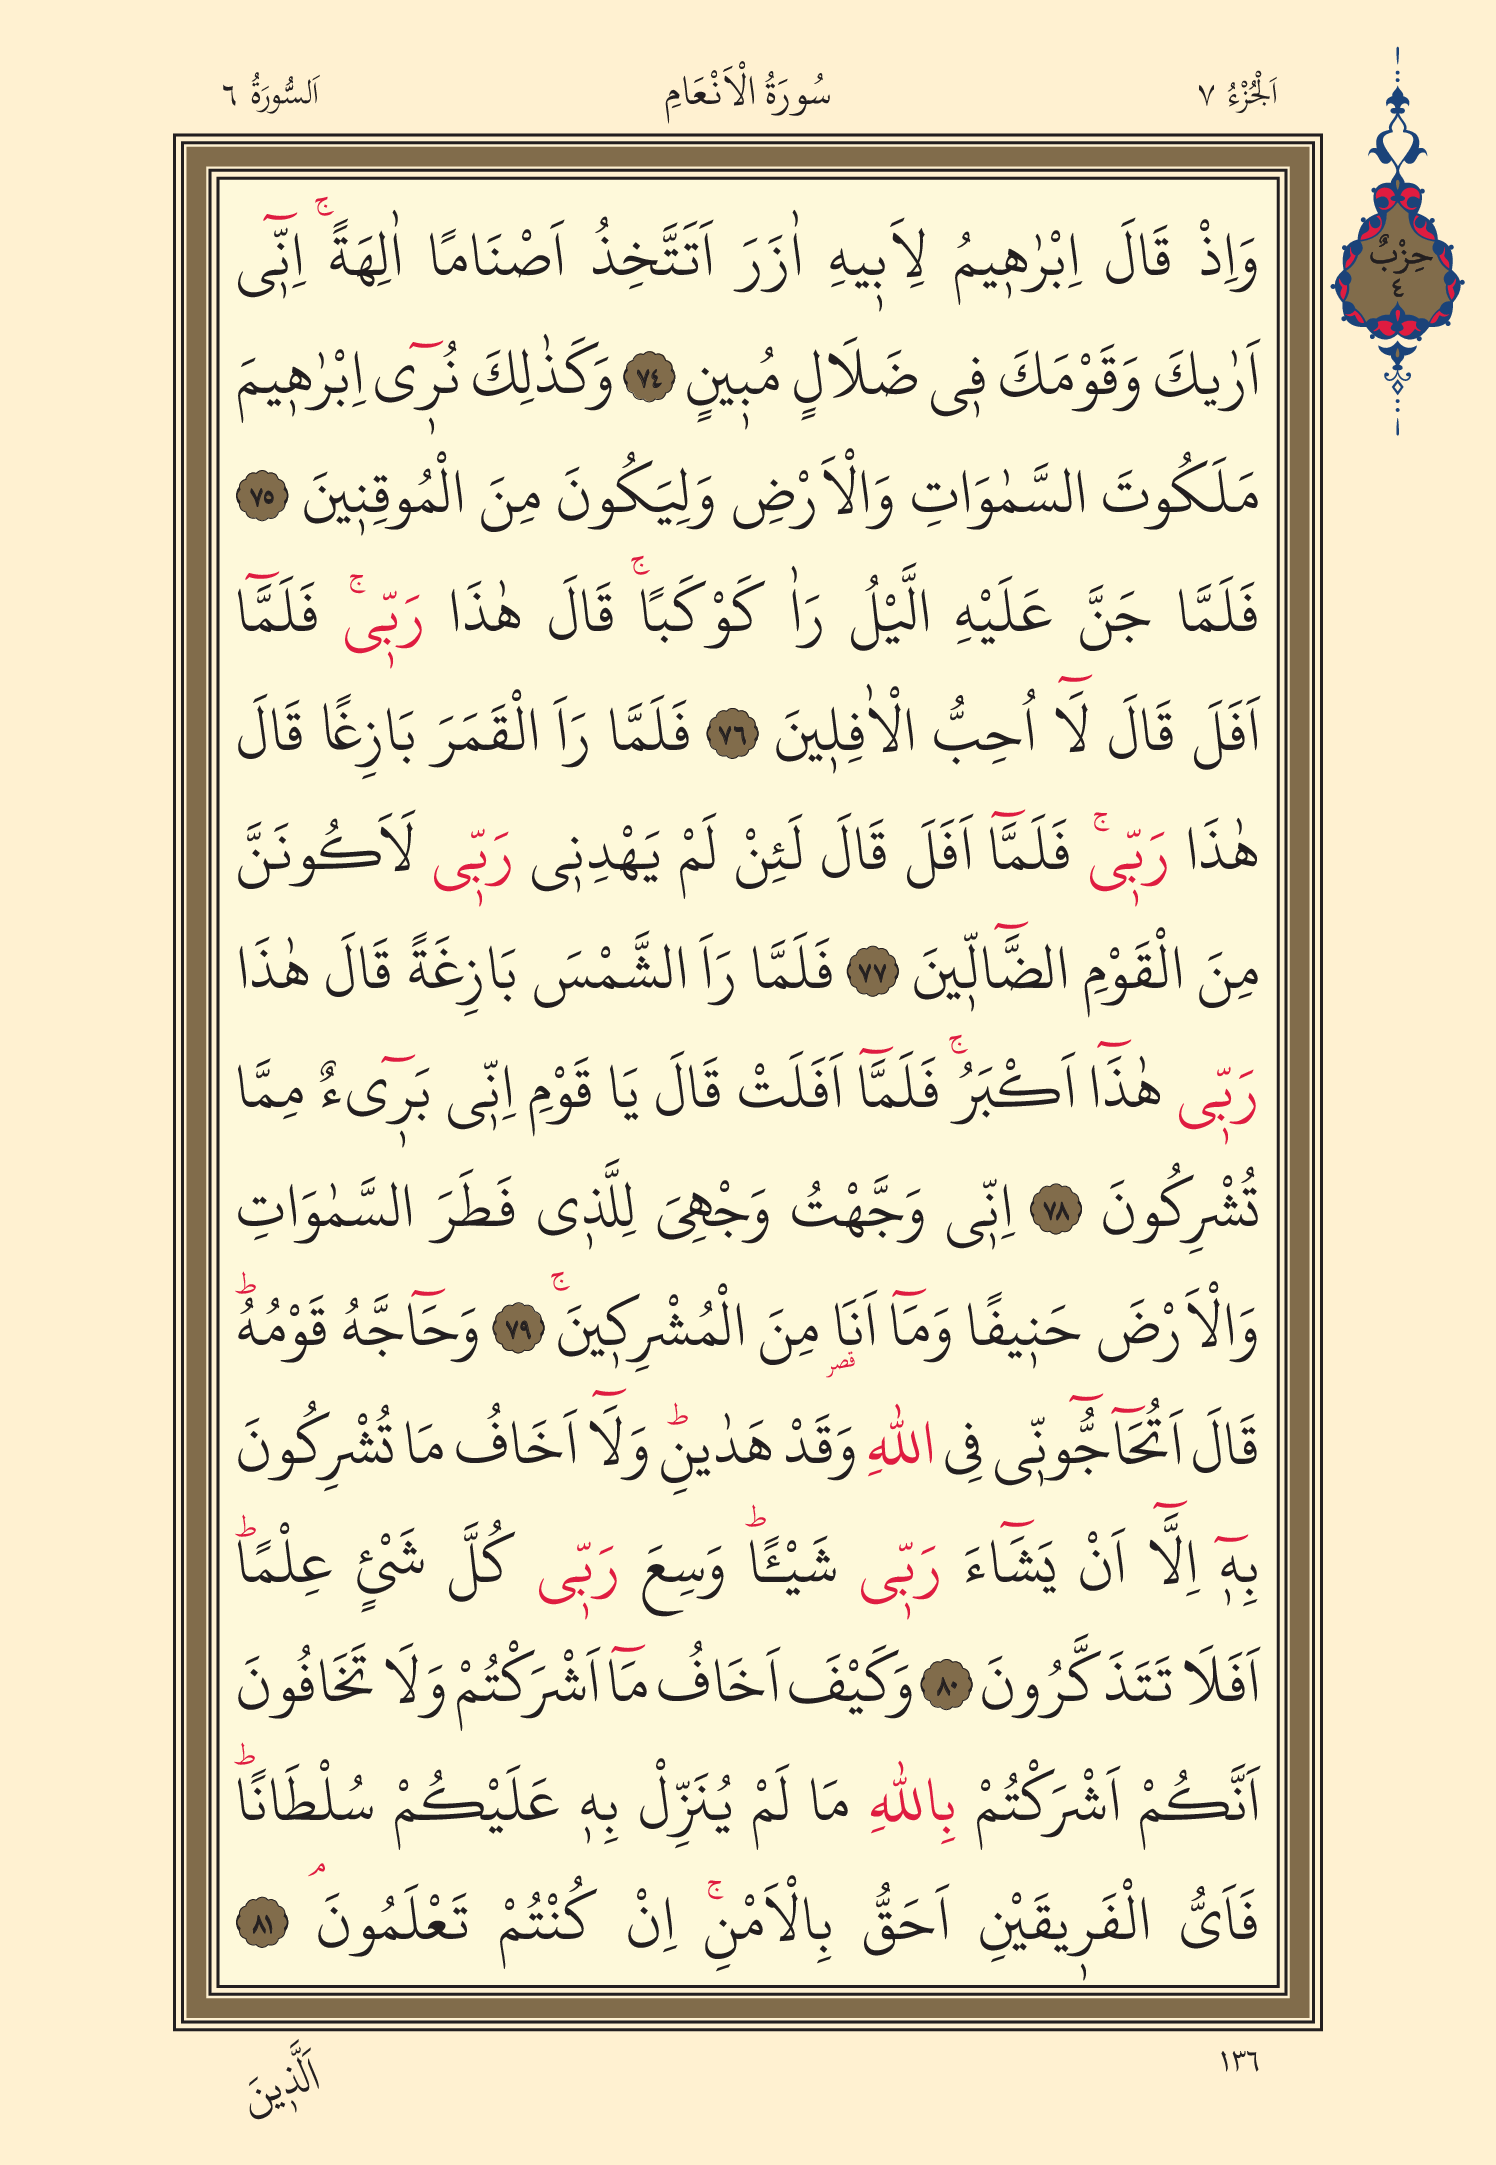 اَلْجُزْءُ ٧
سُورَةُ الْاَنْعَامِ
اَلسُّورَةُ ٦
حِزْبٌ
٤
وَاِذْ قَالَ اِبْرٰه۪يمُ لِاَب۪يهِ اٰزَرَ اَتَتَّخِذُ اَصْنَامًا اٰلِهَةًۚ اِنّ۪ٓى
اَرٰيكَ وَقَوْمَكَ ف۪ى ضَلَالٍ مُب۪ينٍ ﴿٧٤﴾ وَكَذٰلِكَ نُر۪ٓى اِبْرٰه۪يمَ
مَلَكُوتَ السَّمٰوَاتِ وَالْاَرْضِ وَلِيَكُونَ مِنَ الْمُوقِن۪ينَ ﴿٧٥﴾
فَلَمَّا جَنَّ عَلَيْهِ الَّيْلُ رَاٰ كَوْكَبًاۚ قَالَ هٰذَا رَبّ۪ىۚ فَلَمَّٓا
اَفَلَ قَالَ لَٓا اُحِبُّ الْاٰفِل۪ينَ ﴿٧٦﴾ فَلَمَّا رَاَ الْقَمَرَ بَازِغًا قَالَ
هٰذَا رَبّ۪ىۚ فَلَمَّٓا اَفَلَ قَالَ لَئِنْ لَمْ يَهْدِن۪ى رَبّ۪ى لَاَكُونَنَّ
مِنَ الْقَوْمِ الضَّٓالّ۪ينَ ﴿٧٧﴾ فَلَمَّا رَاَ الشَّمْسَ بَازِغَةً قَالَ هٰذَا
رَبّ۪ى هٰذَٓا اَكْبَرُۚ فَلَمَّٓا اَفَلَتْ قَالَ يَا قَوْمِ اِنّ۪ى بَر۪ٓىءٌ مِمَّا
تُشْرِكُونَ ﴿٧٨﴾ اِنّ۪ى وَجَّهْتُ وَجْهِىَ لِلَّذ۪ى فَطَرَ السَّمٰوَاتِ
وَالْاَرْضَ حَن۪يفًا وَمَٓا اَنَا۬ مِنَ الْمُشْرِك۪ينَۚ ﴿٧٩﴾ وَحَٓاجَّهُ قَوْمُهُۜ
قصر
قَالَ اَتُحَٓاجُّٓونّ۪ى فِى اللّٰهِ وَقَدْ هَدٰينِۜ وَلَٓا اَخَافُ مَا تُشْرِكُونَ
بِه۪ٓ اِلَّٓا اَنْ يَشَٓاءَ رَبّ۪ى شَيْـًٔاۜ وَسِعَ رَبّ۪ى كُلَّ شَىْءٍ عِلْمًاۜ
اَفَلَا تَتَذَكَّرُونَ ﴿٨٠﴾ وَكَيْفَ اَخَافُ مَٓا اَشْرَكْتُمْ وَلَا تَخَافُونَ
اَنَّكُمْ اَشْرَكْتُمْ بِاللّٰهِ مَا لَمْ يُنَزِّلْ بِه۪ عَلَيْكُمْ سُلْطَانًاۜ
فَاَىُّ الْفَر۪يقَيْنِ اَحَقُّ بِالْاَمْنِۚ اِنْ كُنْتُمْ تَعْلَمُونَۢ ﴿٨١﴾
١٣٦
اَلَّذ۪ينَ